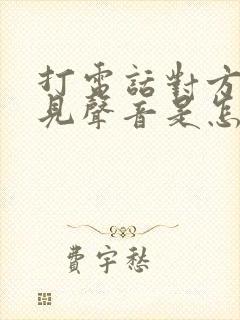 打電話對方
見聲音是怎
費宇愁